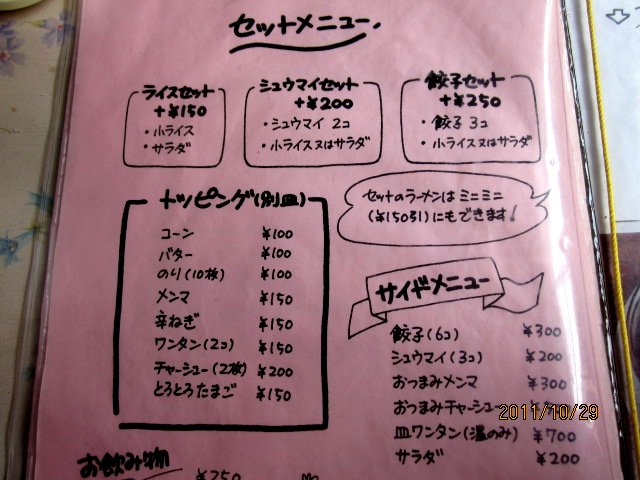 セットメニュー.
ライスセット
+¥150
・小ライス
・サラダ
シュウマイセット
+¥200
・シュウマイ 2コ
・小ライス又はサラダ
餃子セット
+¥250
・餃子 3コ
・小ライス又はサラダ
セットのラーメンは ミニミニ
(¥150引)にもできます!
トッピング(別皿)
コーン ¥100
バター ¥100
のり(10枚) ¥100
メンマ ¥150
辛ねぎ ¥150
ワンタン(2コ) ¥150
チャーシュー(2枚) ¥200
とろとろたまご ¥150
サイドメニュー
餃子(6コ) ¥300
シュウマイ(3コ) ¥200
おつまみメンマ ¥300
おつまみチャーシュー
皿ワンタン(温のみ) ¥700
サラダ ¥200
お飲み物
¥250
2011/10/29